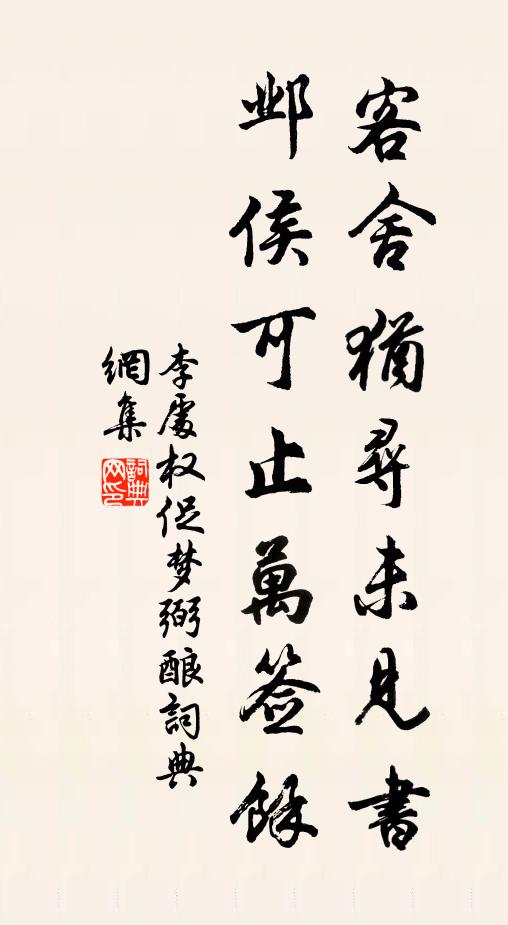 客舍猶尋未見書
邺侯可止萬签餘
李處权促梦弼酿詞典
網集
詞典網印